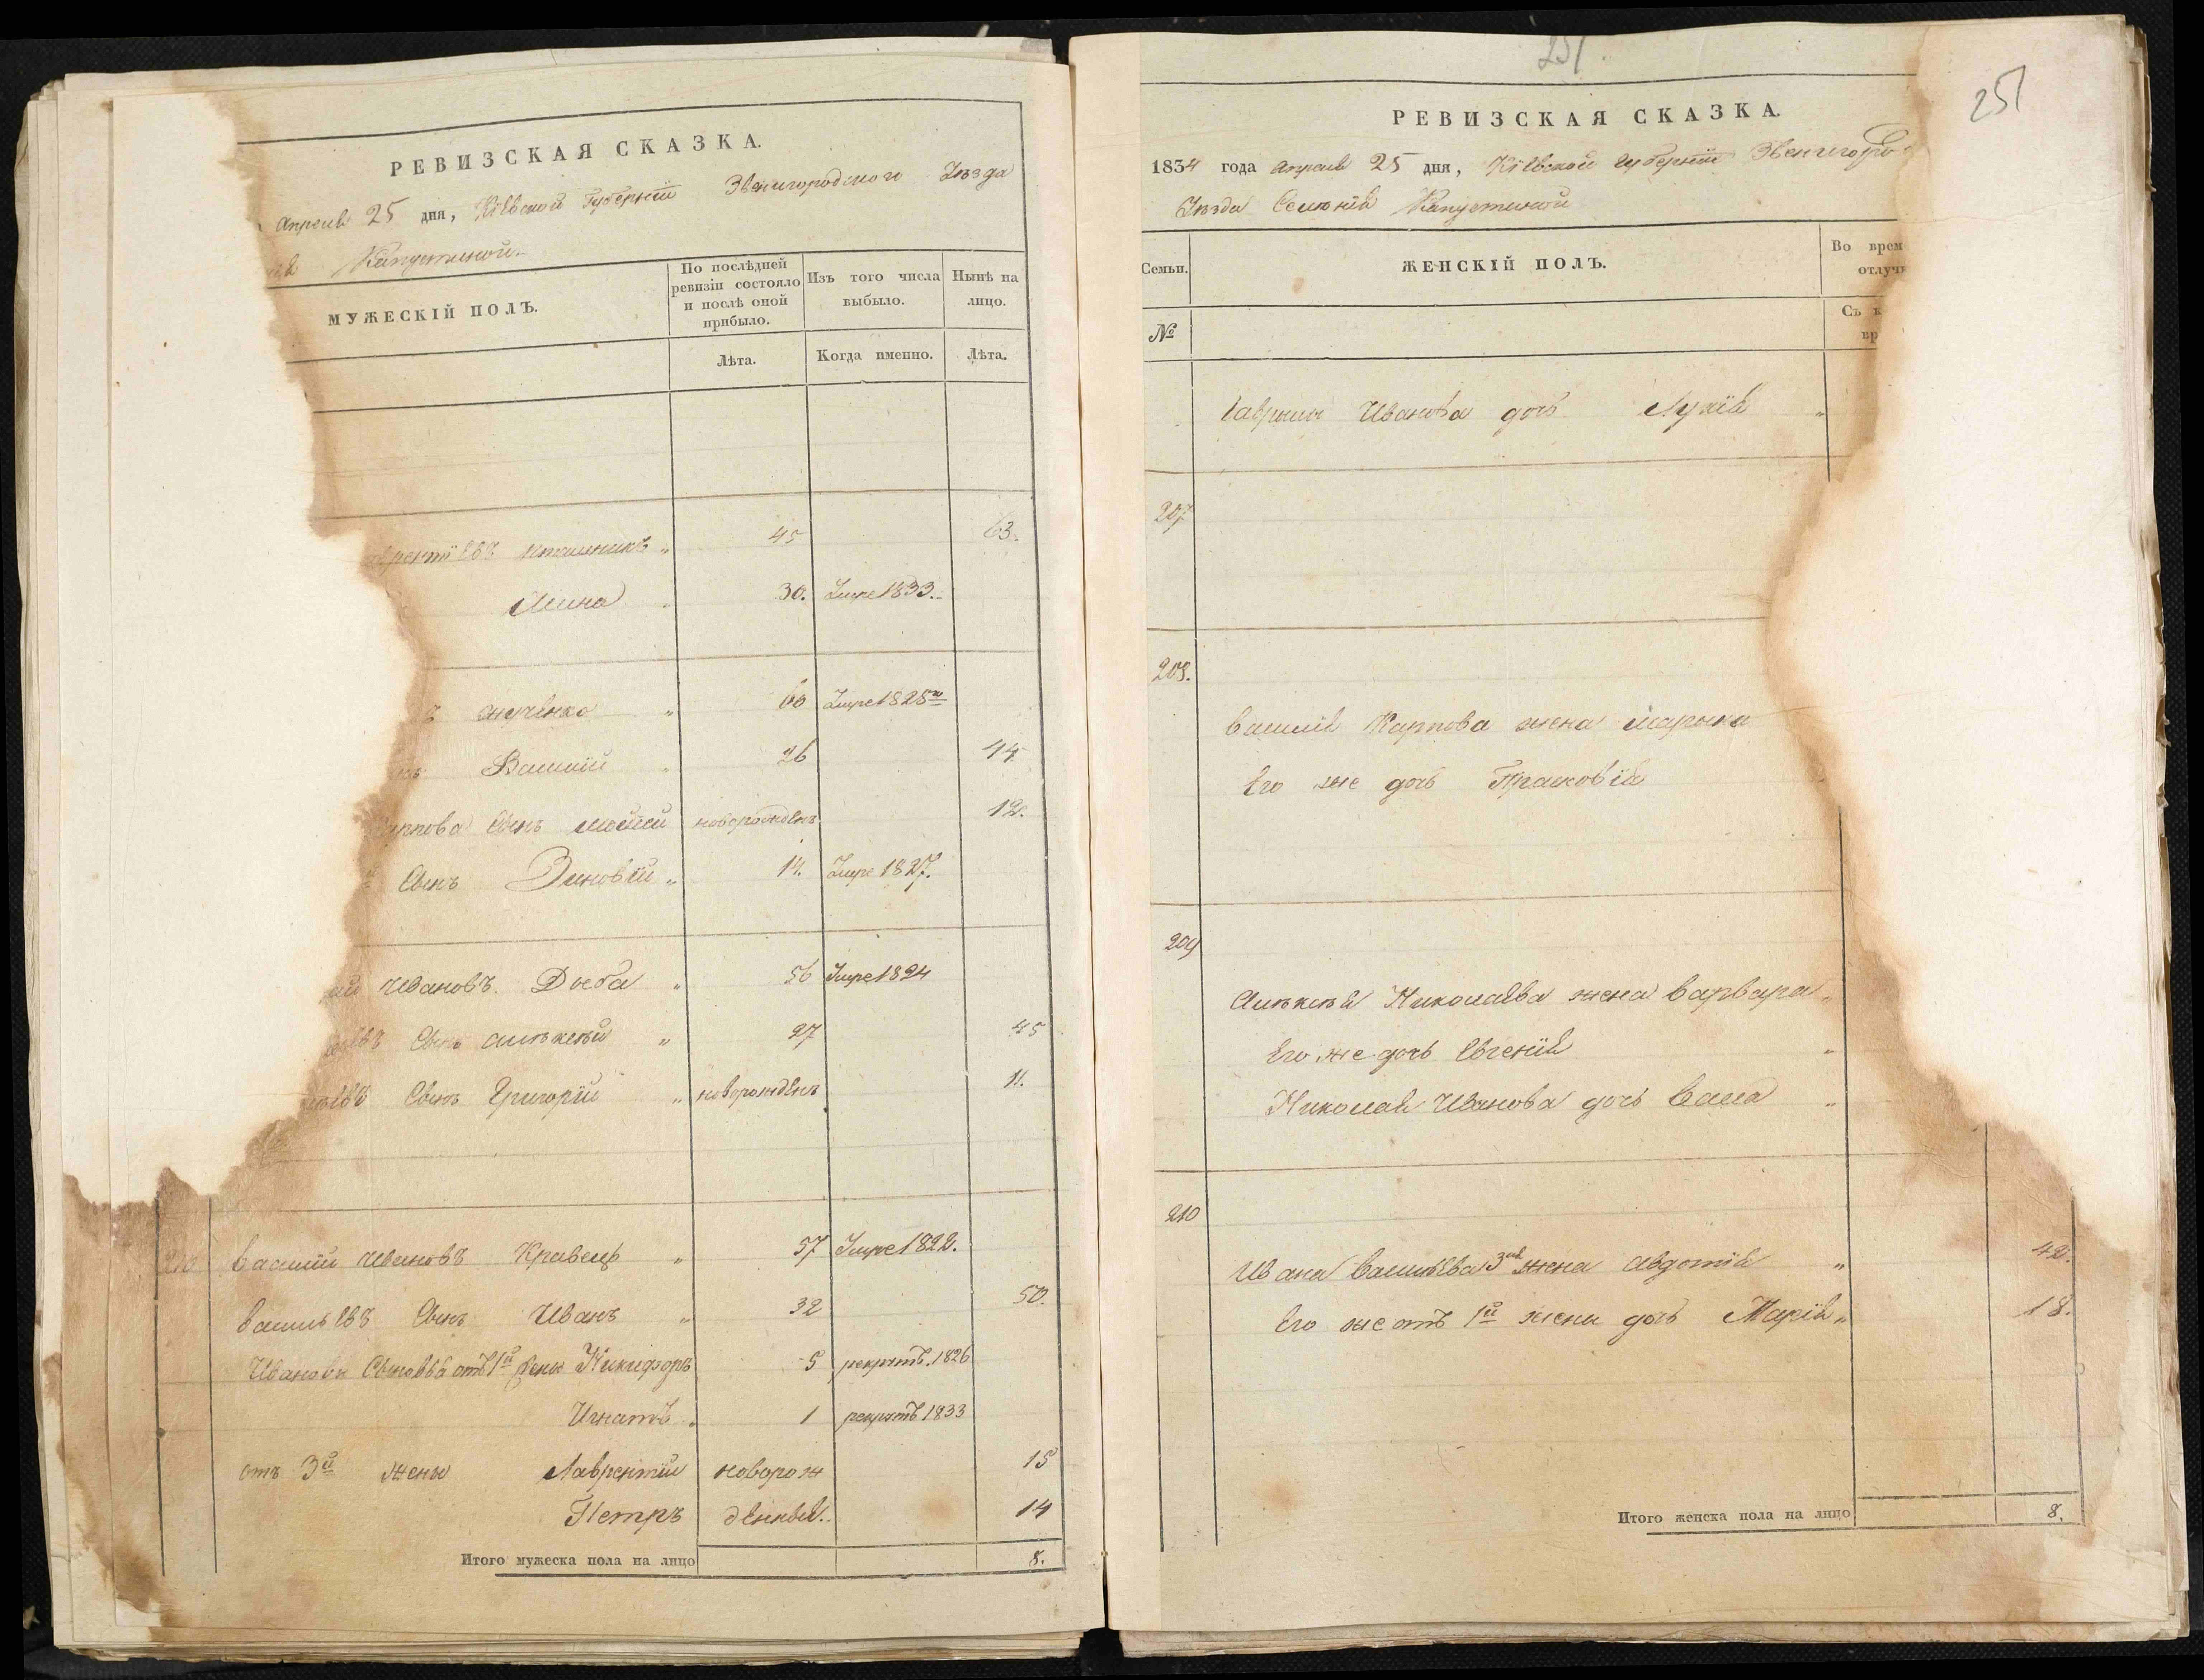 РЕВИЗСКАЯ СКАЗКА.
Апреля 25 дня, Кіевской Губерніи Звенигородского Уѣзда
Капустиной
МУЖЕСКІЙ ПОЛЪ.
По послѣдней ревизіи состояло и послѣ оной прибыло.
Изъ того числа выбыло.
Нынѣ на лицо.
Лѣта.
Когда именно.
Лѣта.
45 63.
Мина 30. Умре 1833.
60 Умре 1828го
Василій 26 44
Карпова Сынъ Моисей новорожденъ 12.
Сынъ Зиновій 14. Умре 1827.
Ивановъ Дзюба 56 Умре 1824
Сынъ Алѣксѣй 27 45
Сынъ Григорій новорожденъ 11.
210 Василій Ивановъ Кравецъ 57 Умре 1822.
Васильевъ Сынъ Иванъ 32 50.
Ивановы Сыновья отъ 1й жены Никифоръ 5 рекрутъ. 1826
Игнатъ 1 рекрутъ 1833
отъ 3й жены Лаврентій новорож 15
Петръ денные. 14
Итого мужеска пола на лицо 8.
251.
251
РЕВИЗСКАЯ СКАЗКА.
1834 года Апреля 25 дня, Кіевской Губерніи Звенигоро
Уѣзда Селенія Капустиной
Семьи.
ЖЕНСКІЙ ПОЛЪ.
Во врем
отлуч
№
Съ к
вр
Гаврилы Иванова дочь Лукія
207
208.
Василія Карпова жена Марына
Его же дочь Прасковія
209
Алѣксѣя Николаева жена Варвара
Его же дочь Евгенія
Николая Иванова дочь
210
Ивана Васильева 3я жена Авдотія 42.
Его же отъ 1й жены дочь Марія 18.
Итого женска пола на лицо 8.